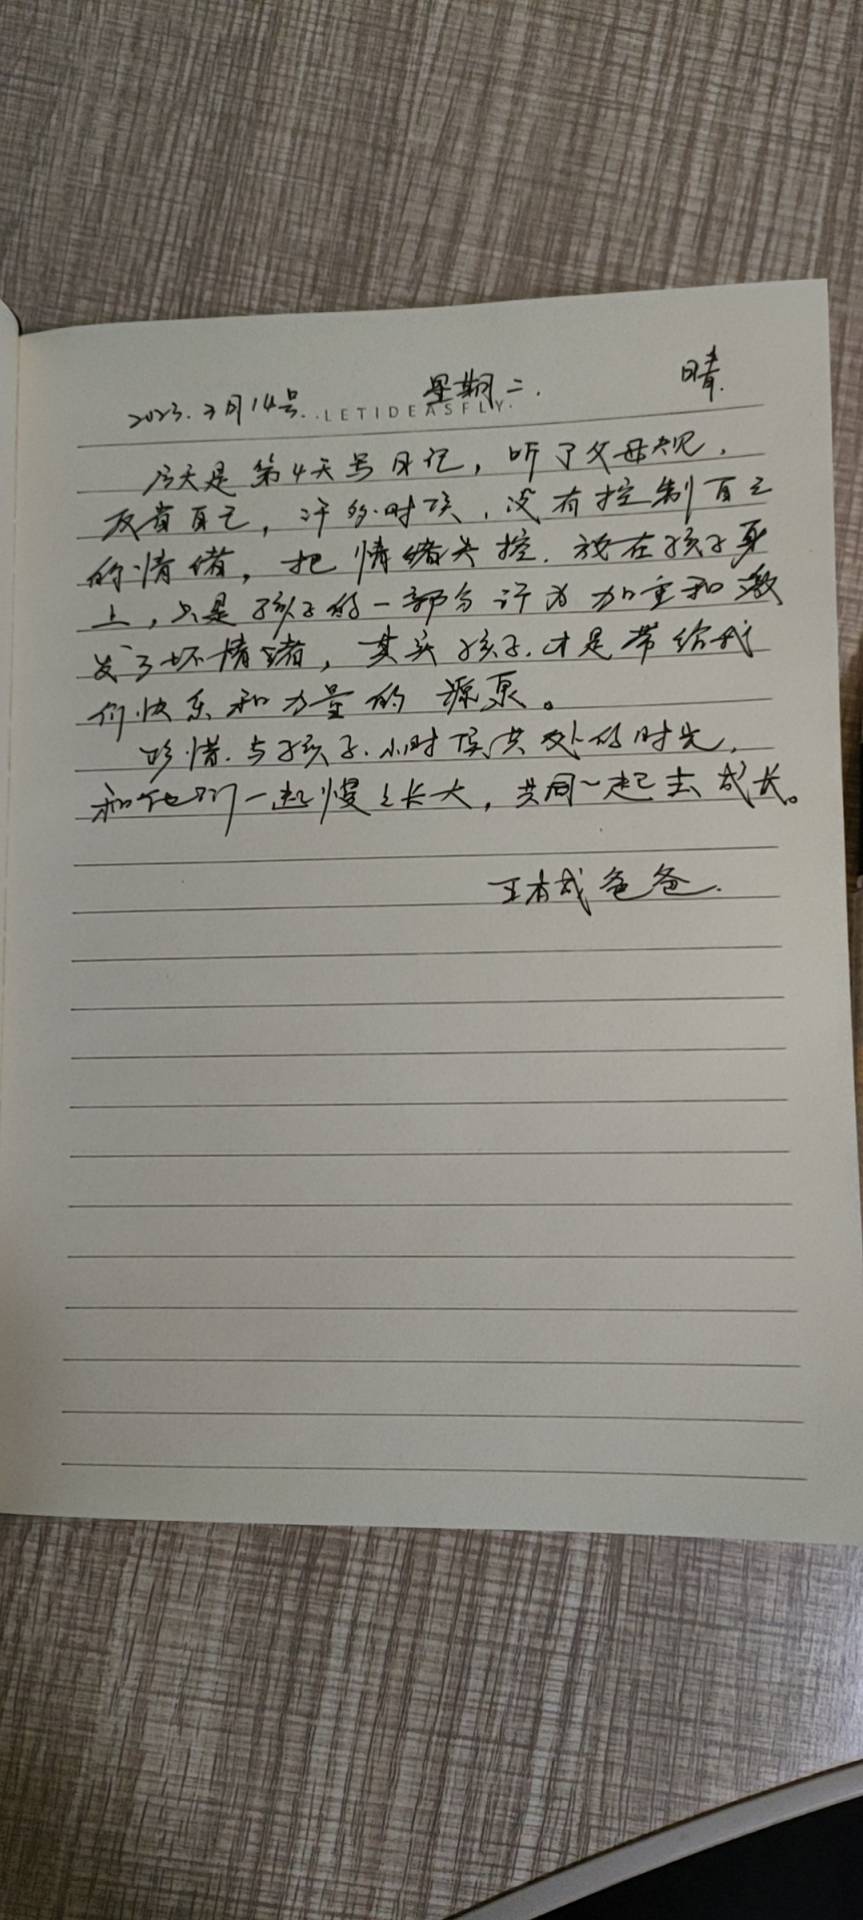 2023.3月14号. 星期二. 晴.
LETIDEASFLY.
今天是第4天写日记，听了父母规，
反省自己，许多时候，没有控制自己
的情绪，把情绪失控.放在孩子身
上，只是孩子的一部分行为加重和激
发了坏情绪，其实孩子.才是带给我
们快乐和力量的源泉。
珍惜.与孩子.小时候共处的时光，
和他们一起慢慢长大，共同一起去成长。
王有成爸爸.